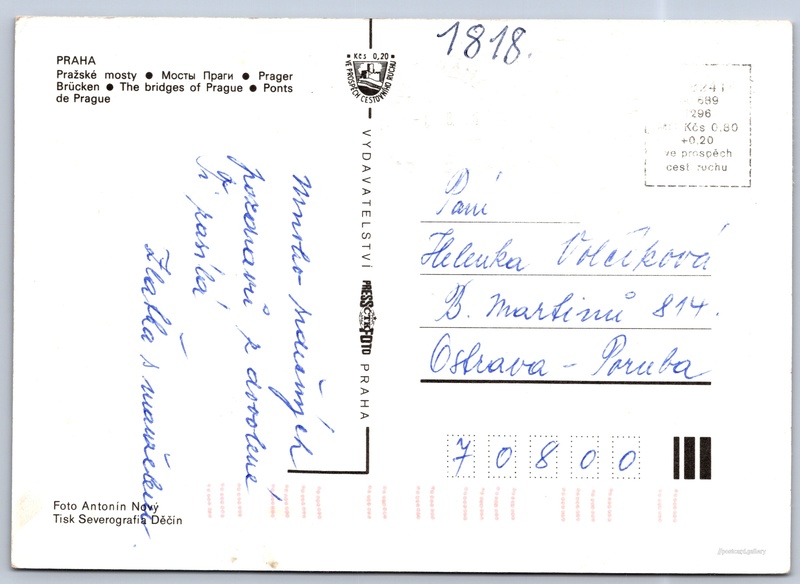 1818.
PRAHA
Pražské mosty ● Мосты Праги ● Prager
Brücken ● The bridges of Prague ● Ponts
de Prague
Kčs 0,20
VE PROSPĚCH CESTOVNÍHO RUCHU
VYDAVATELSTVÍ PRESSFOTO PRAHA
ČTK
689
296
Kčs 0.80
+0.20
ve prospěch
cest ruchu
Mnoho srdečných
pozdravů z dovolené
Ti posílá
Zlatka s manželem
Paní
Helenka Volčíková
B. Martinů 814.
Ostrava - Poruba
70800
Foto Antonín Nový
Tisk Severografia Děčín